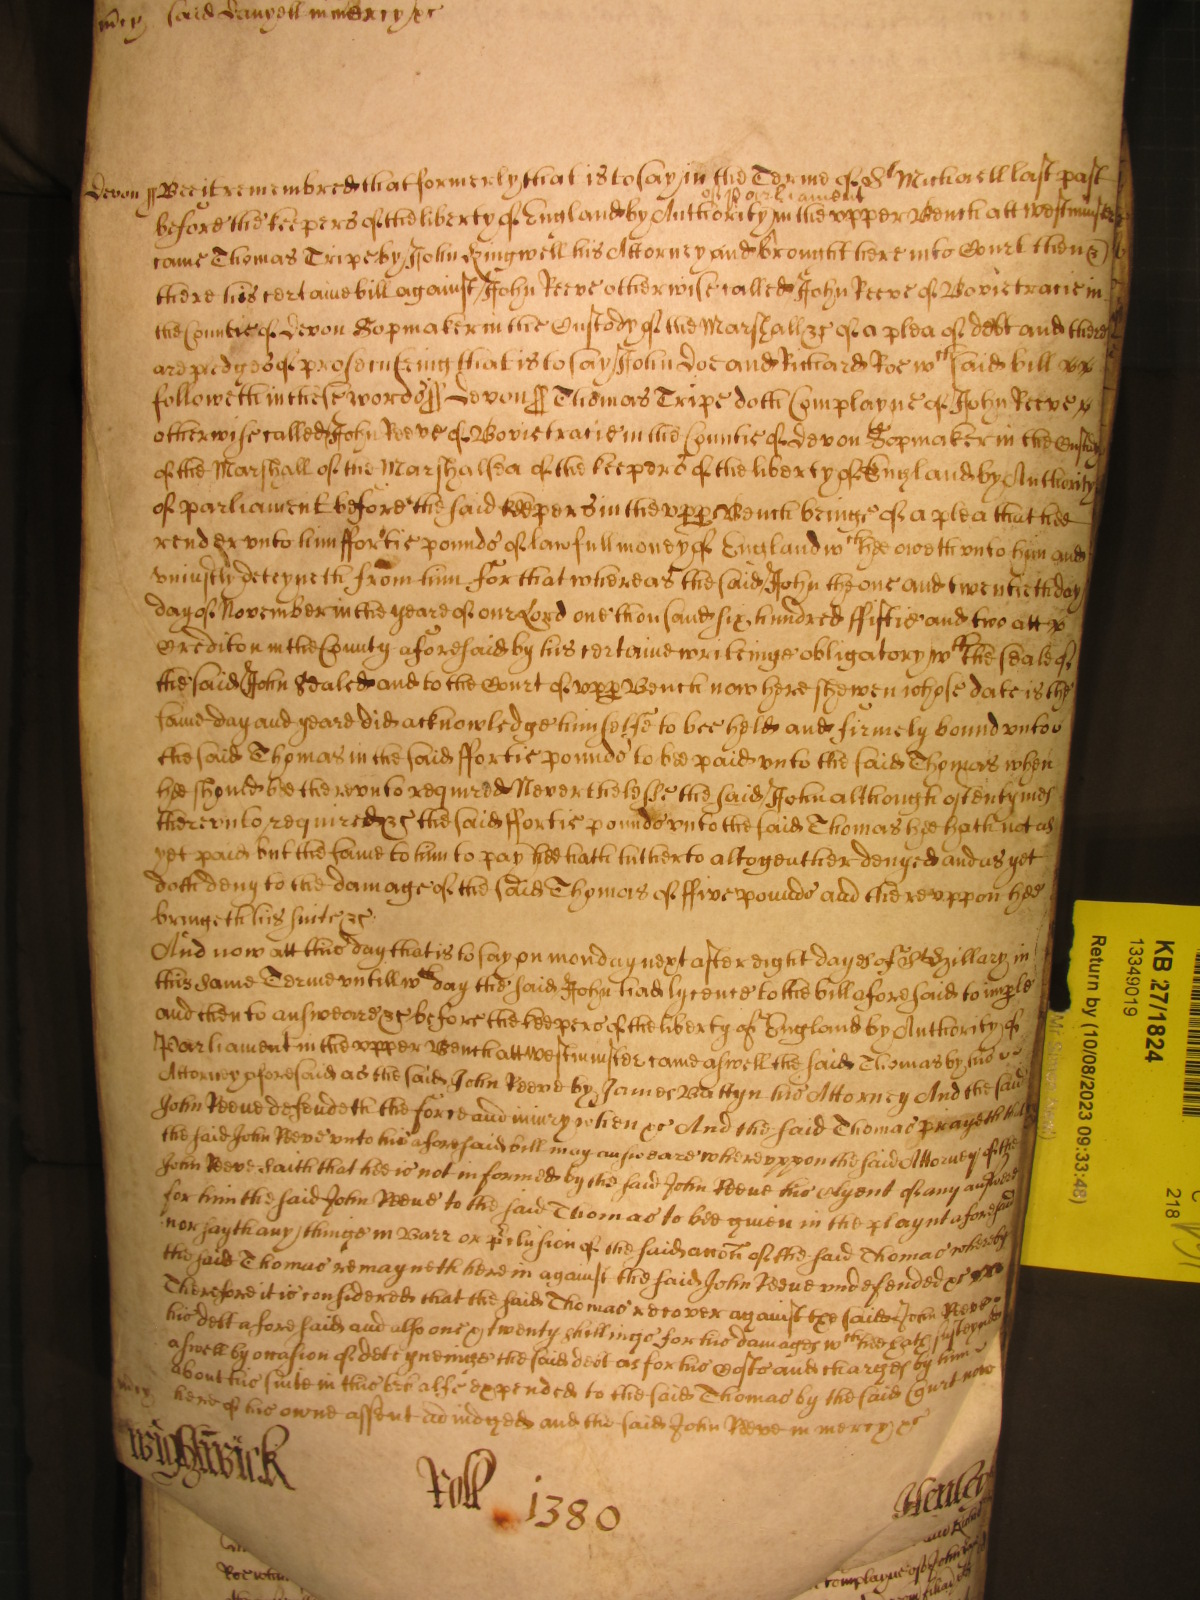 mercy said Danyell in mercy &c
Devon ss Bee it remembred that formerly that is to say in the Terme of St Michaell last past
of Parliament
before the keepers of the liberty of England by Authority in the upper Bench att Westminster
came Thomas Tripe by John Gingwell his Attorney and brought here into Court then &
there his certaine bill against John Reeve otherwise called John Reeve of Bovietracie in
the Countie of Devon Sopmaker in the Custody of the Marshall &c of a plea of debt and there
are pledges of prosecuteing that is to say John Doe and Richard Roe wch said bill
followeth in these words ss Devon ss Thomas Tripe doth Complayne of John Reeve
otherwise called John Reeve of Bovietracie in the Countie of Devon Sopmaker in the Custody
of the Marshall of the Marshalsea of the keepers of the liberty of England by Authority
of parliament before the said keepers in the upp Bench beinge of a plea that hee
render unto him ffortie pounds of lawfull money of England wch hee oweth unto him and
uniustly deteyneth from him for that whereas the said John the one and twentieth day
day of November in the yeare of our Lord one thousand six hundred ffiftie and two att
Crediton in the County aforesaid by his certaine writeinge obligatory wth the seale of
the said John Sealed and to the Court of upp Bench now here shewen whose date is the
same day and yeare did acknowledge himselfe to bee held and firmely bound unto
the said Thomas in the said ffortie pounds to bee paid unto the said Thomas when
hee should bee thereunto required Neverthelesse the said John although oftentymes
thereunto required &c the said ffortie pounds unto the said Thomas hee hath not as
yet paid but the same to him to pay hee hath hitherto altogeather denyed and as yet
doth deny to the damage of the said Thomas of ffive pounds and thereuppon hee
bringeth his suite &c
And now att this day that is to say on monday next after eight dayes of St Hillary in
this same Terme untill wch day the said John had lycence to the bill aforesaid to imple
and then to answeare &c before the keepers of the liberty of England by Authority of
Parliament in the upper Bench att Westminster came aswell the said Thomas by his
Attorney aforesaid as the said John Reeve by James Battyn his Attorney And the said
John Reeve defendeth the force and iniury when &c And the said Thomas prayeth that
the said John Reeve unto his aforesaid bill may answeare whereuppon the said Attorney of the
John Reeve saith that hee is not informed by the said John Reeve his Clyent of any answere
for him the said John Reeve to the said Thomas to bee given in the playnt aforesaid
nor sayth any thinge in Barr or p'clusion of the said accon of the said Thomas whereby
the said Thomas remayneth herein against the said John Reeve undefended &c
Therefore it is considered that the said Thomas recover against the said John Reeve
his debt aforesaid and also one & twenty shillings for his damages wch hee hath susteyned
aswell by occasion of deteyneinge the said debt as for his Costs and charges by him
about his suite in this behalfe expended to the said Thomas by the said Court now
mercy here of his owne assent adiudged and the said John Reeve in mercy &c
Wightwick Roll 1380 Henley
complayne of John
KB 27/1824
13349019
Return by (10/08/2023 09:33:48)
218